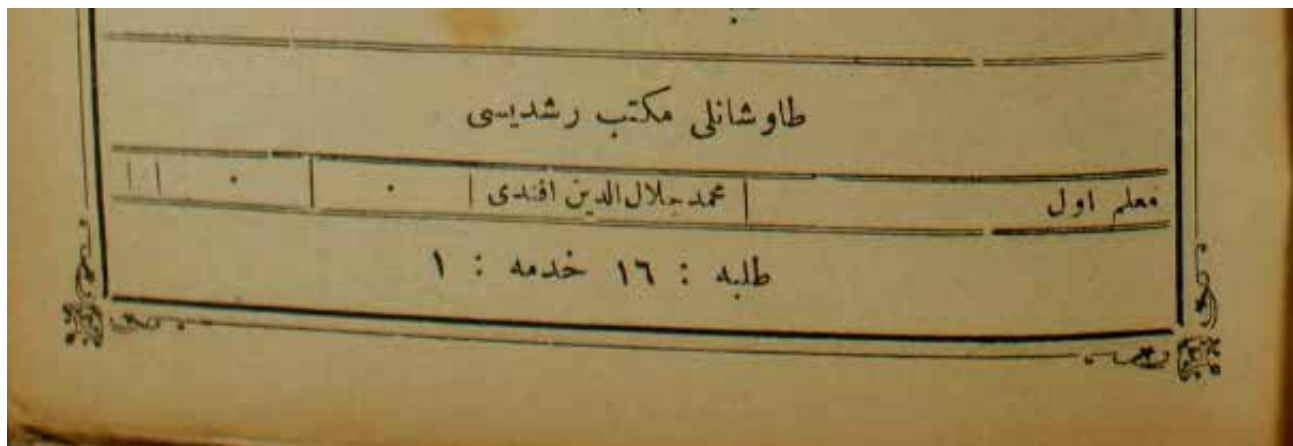 طاوشانلی مکتب رشدیسی
معلم اول محمد جلال الدین افندی ٠ ٠
طلبه : ١٦ خدمه : ١